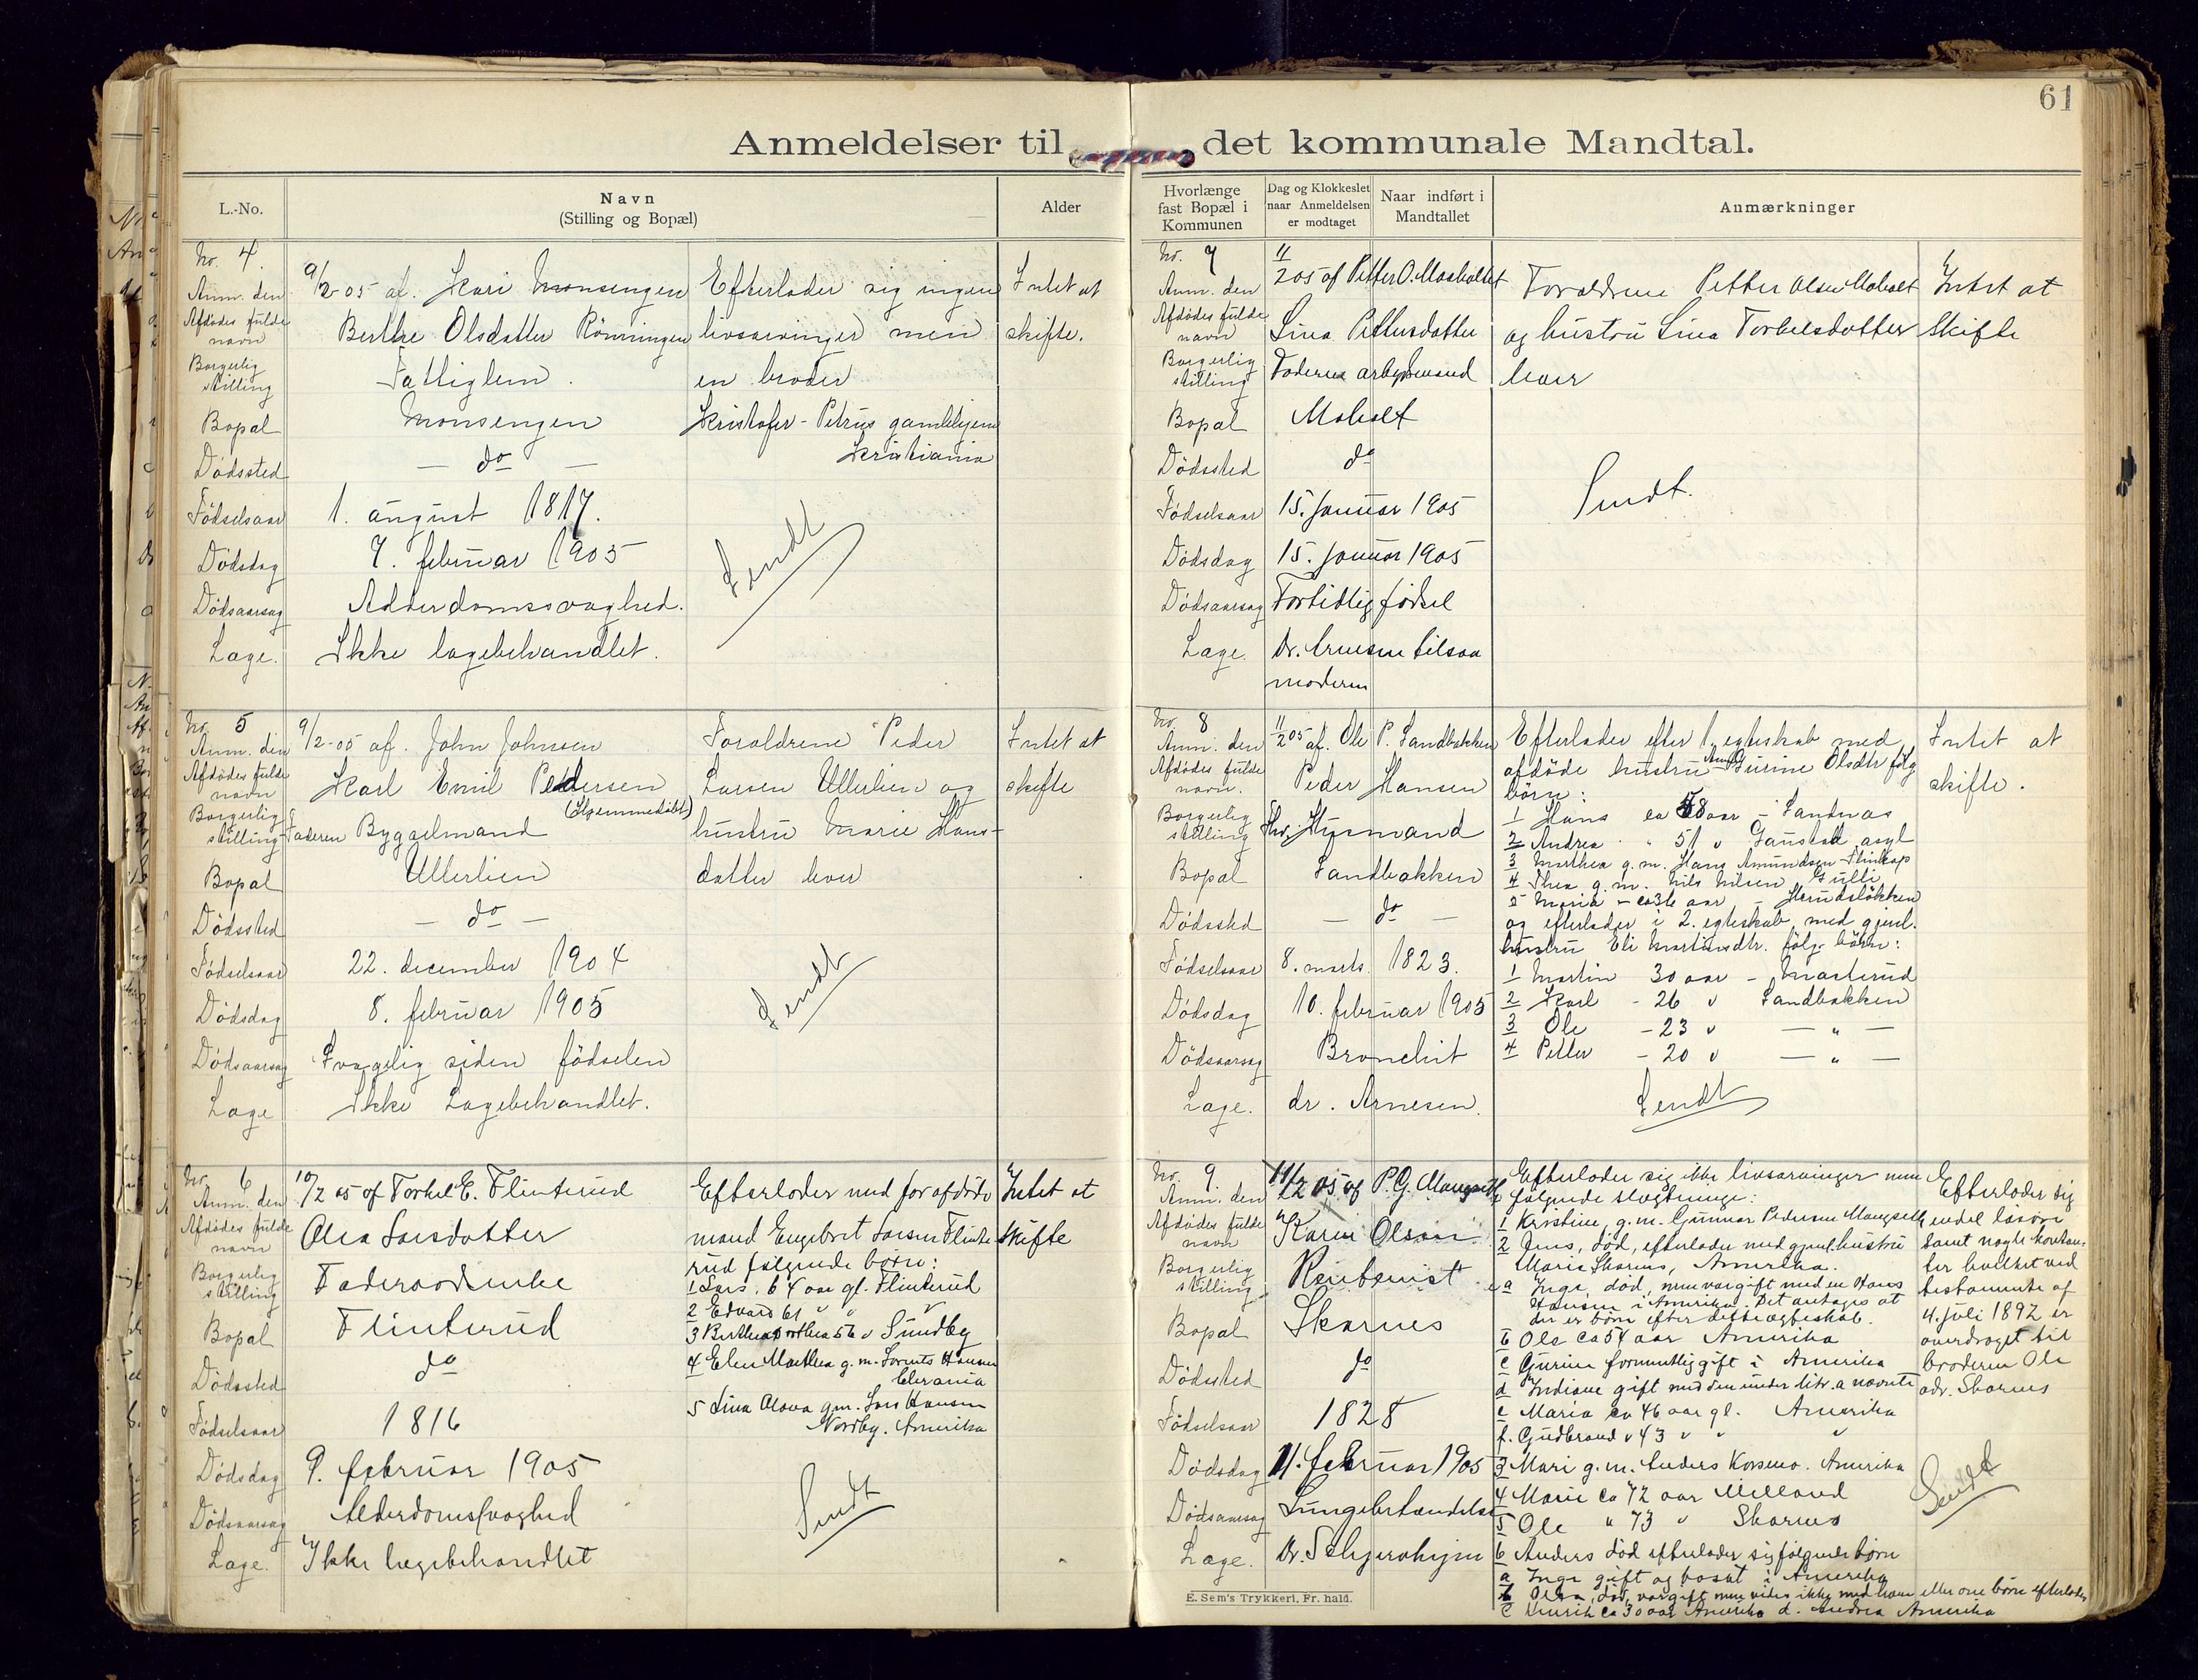 61
Anmeldelser til det kommunale Mandtal.
L.-No.
Navn
(Stilling og Bopæl)
Alder
Hvorlænge
fast Bopæl i
Kommunen
Dag og Klokkeslet
naar Anmeldelsen
er modtaget
Naar indført i
Mandtallet
Anmærkninger
No. 4.
Anm. den 9/2-05 af. Kari Monsengen
Afdödes fulde navn Berthe Olsdatter Rönningen
Borgerlig stilling Fattiglem.
Bopæl Monsengen
Dödssted — do —
Födselsaar 1. august 1817.
Dödsdag 7. februar 1905
Dödsaarsag Alderdomssvaghed.
Læge. Ikke lægebehandlet.
Efterlader sig ingen
livsarvinger men
en broder
Kristofer - Petrus gamlehjem
Kristiania
Sendt
Intet at
skifte.
No. 5
Anm. den 9/2-05 af. John Johnsen
Afdödes fulde navn Karl Emil Pedersen
(Hjemmedöbt)
Borgerlig stilling Faderen Byggselmand
Bopæl Ullerlien
Dödssted — do —
Födselsaar 22. december 1904
Dödsdag 8. februar 1905
Dödsaarsag Svagelig siden födselen
Læge Ikke Lægebehandlet.
Forældrene Peder
Larsen Ullerlien og
hustru Marie Hans-
datter lever
Sendt
Intet at
skifte
No. 6
Anm. den 10/2 05 af Torkel E. Flinterud
Afdödes fulde navn Olea Larsdatter
Borgerlig stilling Foderaadsenke
Bopæl Flinterud
Dödssted do
Födselsaar 1816
Dödsdag 9. februar 1905
Dödsaarsag Alderdomssvaghed
Læge. Ikke lægebehandlet
Efterlader med før afdöde
mand Engebret Larsen Flinte-
rud følgende børn:
1 Lars. 64 aar gl. Flinterud
2 Edvard 61 " " "
3 Berthe 56 " Sundby
4 Elen Mathea g.m. Lorents Hansen
5 Lina Olava g.m. Lars Hansen
Nordby. Amerika
Sendt
Intet at
skifte
No. 7
Anm. den 11/2 05 af Petter O. Maaholtet
Afdödes fulde navn Lina Pettersdatter
Borgerlig stilling Faderen arbeidsmand
Bopæl Moholt
Dödssted do
Födselsaar 15. januar 1905
Dödsdag 15. januar 1905
Dödsaarsag Fortidlig födsel
Læge. Dr. Arnesen tilsaa
moderen
Forældrene Petter Olsen Moholt
og hustru Lina Torkelsdatter
lever
Sendt.
Intet at
skifte
No. 8
Anm. den 11/2 05 af. Ole P. Sandbakken
Afdödes fulde navn. Peder Hansen
Borgerlig stilling Husmand
Bopæl Sandbakken
Dödssted — do —
Födselsaar 8. marts 1823.
Dödsdag 10. februar 1905
Dödsaarsag Bronchit
Læge. dr. Arnesen.
Efterlader efter 1. egteskab med
afdöde hustru Gurine Olsdtr følg.
börn:
1 Hans ca 58 aar - Sandnæs
2 Andrea " 51 " Gaustad asyl
3 Marthea g.m. Hans Amundsen
4 Thea g.m. Nils Nilsen Gulli
5 Maria - ca 36 aar -
og efterlader i 2. egteskab med gjenl.
hustru Eli Martinsdtr. følg. börn:
1 Martin 30 aar - Masterud
2 Karl - 26 " Sandbakken
3 Ole - 23 " — " —
4 Petter - 20 " — " —
Sendt
Intet at
skifte.
No. 9.
Anm. den 11/2 05 af P. G. Mangseth
Afdödes fulde navn Karen Olsen
Borgerlig stilling Rentenist
Bopæl Skarnes
Dödssted do
Födselsaar 1828
Dödsdag 11. februar 1905
Dödsaarsag Lungebetændelse
Læge. Dr. Schjerahjem
Efterlader sig ikke livsarvinger men
følgende slægtninge:
1 Kristine, g.m. Gunnar Pedersen Mangseth
2 Jens, død, efterlader med gjenl. hustru
Maria Skarnes, Amerika.
a Inge, død, men var gift med en Hans
Hansen i Amerika. Det antages at
der er børn efter dette ægteskab.
b Ole ca 54 aar Amerika
c Gurine formentlig gift i Amerika
d Indiane gift med den under litr. a nævnte
e Maria ca 46 aar gl. Amerika
f. Gudbrand " 43 " " "
3 Mari g.m. Anders Korsmo. Amerika
4 Marie ca 72 aar Melland
5 Ole " 73 " Skarnes
6 Anders død efterlader sig følgende børn
a Inge gift og bosat i Amerika
b Olea, død, var gift men vides ikke med hvem eller om børn efterlades
c Henrik ca 30 aar Amerika d. Andrea Amerika
Efterlader sig
endel løsøre
samt nogle kontan-
ter hvilket ved
testamente af
4. juli 1892 er
overdraget til
broderen Ole
adr. Skarnes
Sendt
E. Sem's Trykkeri, Fr.hald.